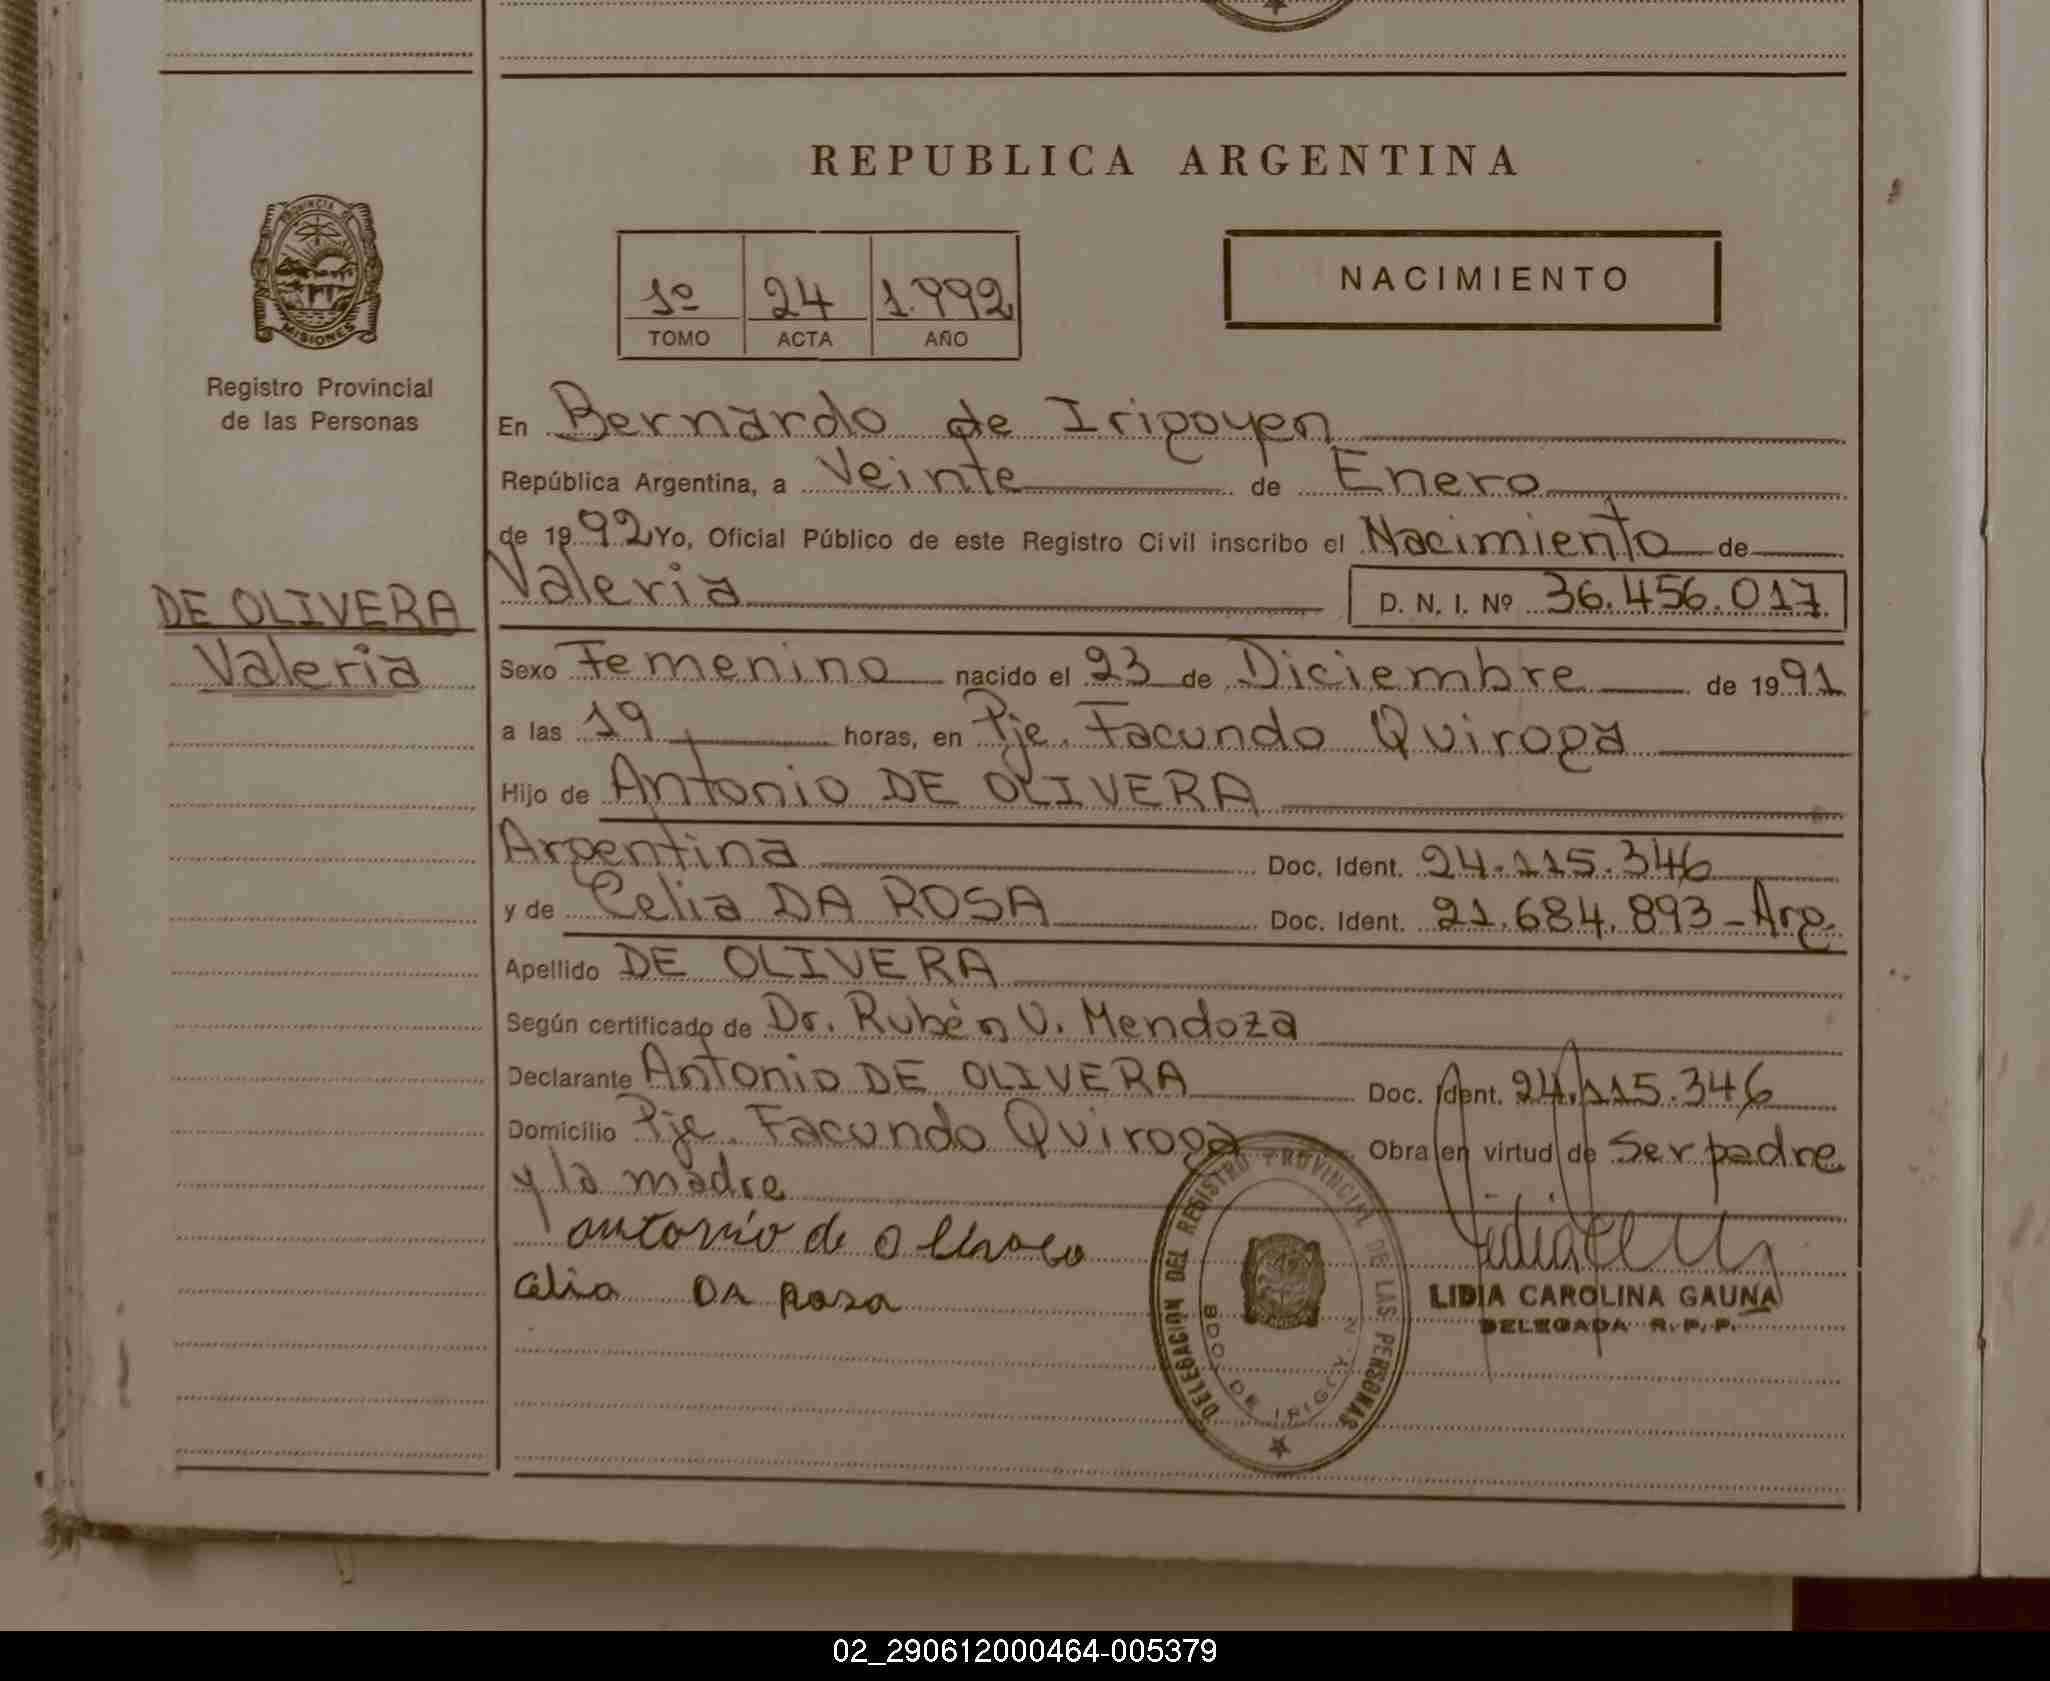 REPUBLICA ARGENTINA
PROVINCIA DE
MISIONES
Registro Provincial
de las Personas
1º 24 1.992
TOMO ACTA AÑO
NACIMIENTO
En Bernardo de Irigoyen
República Argentina, a Veinte de Enero
de 1992 Yo, Oficial Público de este Registro Civil inscribo el Nacimiento de
DE OLIVERA
Valeria
Valeria D. N. I. Nº 36.456.017
Sexo Femenino nacido el 23 de Diciembre de 1991
a las 19 horas, en Pje. Facundo Quiroga
Hijo de Antonio DE OLIVERA
Argentina Doc. Ident. 24.115.346
y de Celia DA ROSA Doc. Ident. 21.684.893-Arg.
Apellido DE OLIVERA
Según certificado de Dr. Rubén V. Mendoza
Declarante Antonio DE OLIVERA Doc. Ident. 24.115.346
Domicilio Pje. Facundo Quiroga Obra en virtud de Ser padre
y la madre
antonio de
Celia DA Rosa
DELEGACION DEL REGISTRO PROVINCIAL DE LAS PERSONAS
LIDIA CAROLINA GAUNA
DELEGADA R. P. P.
02_290612000464-005379